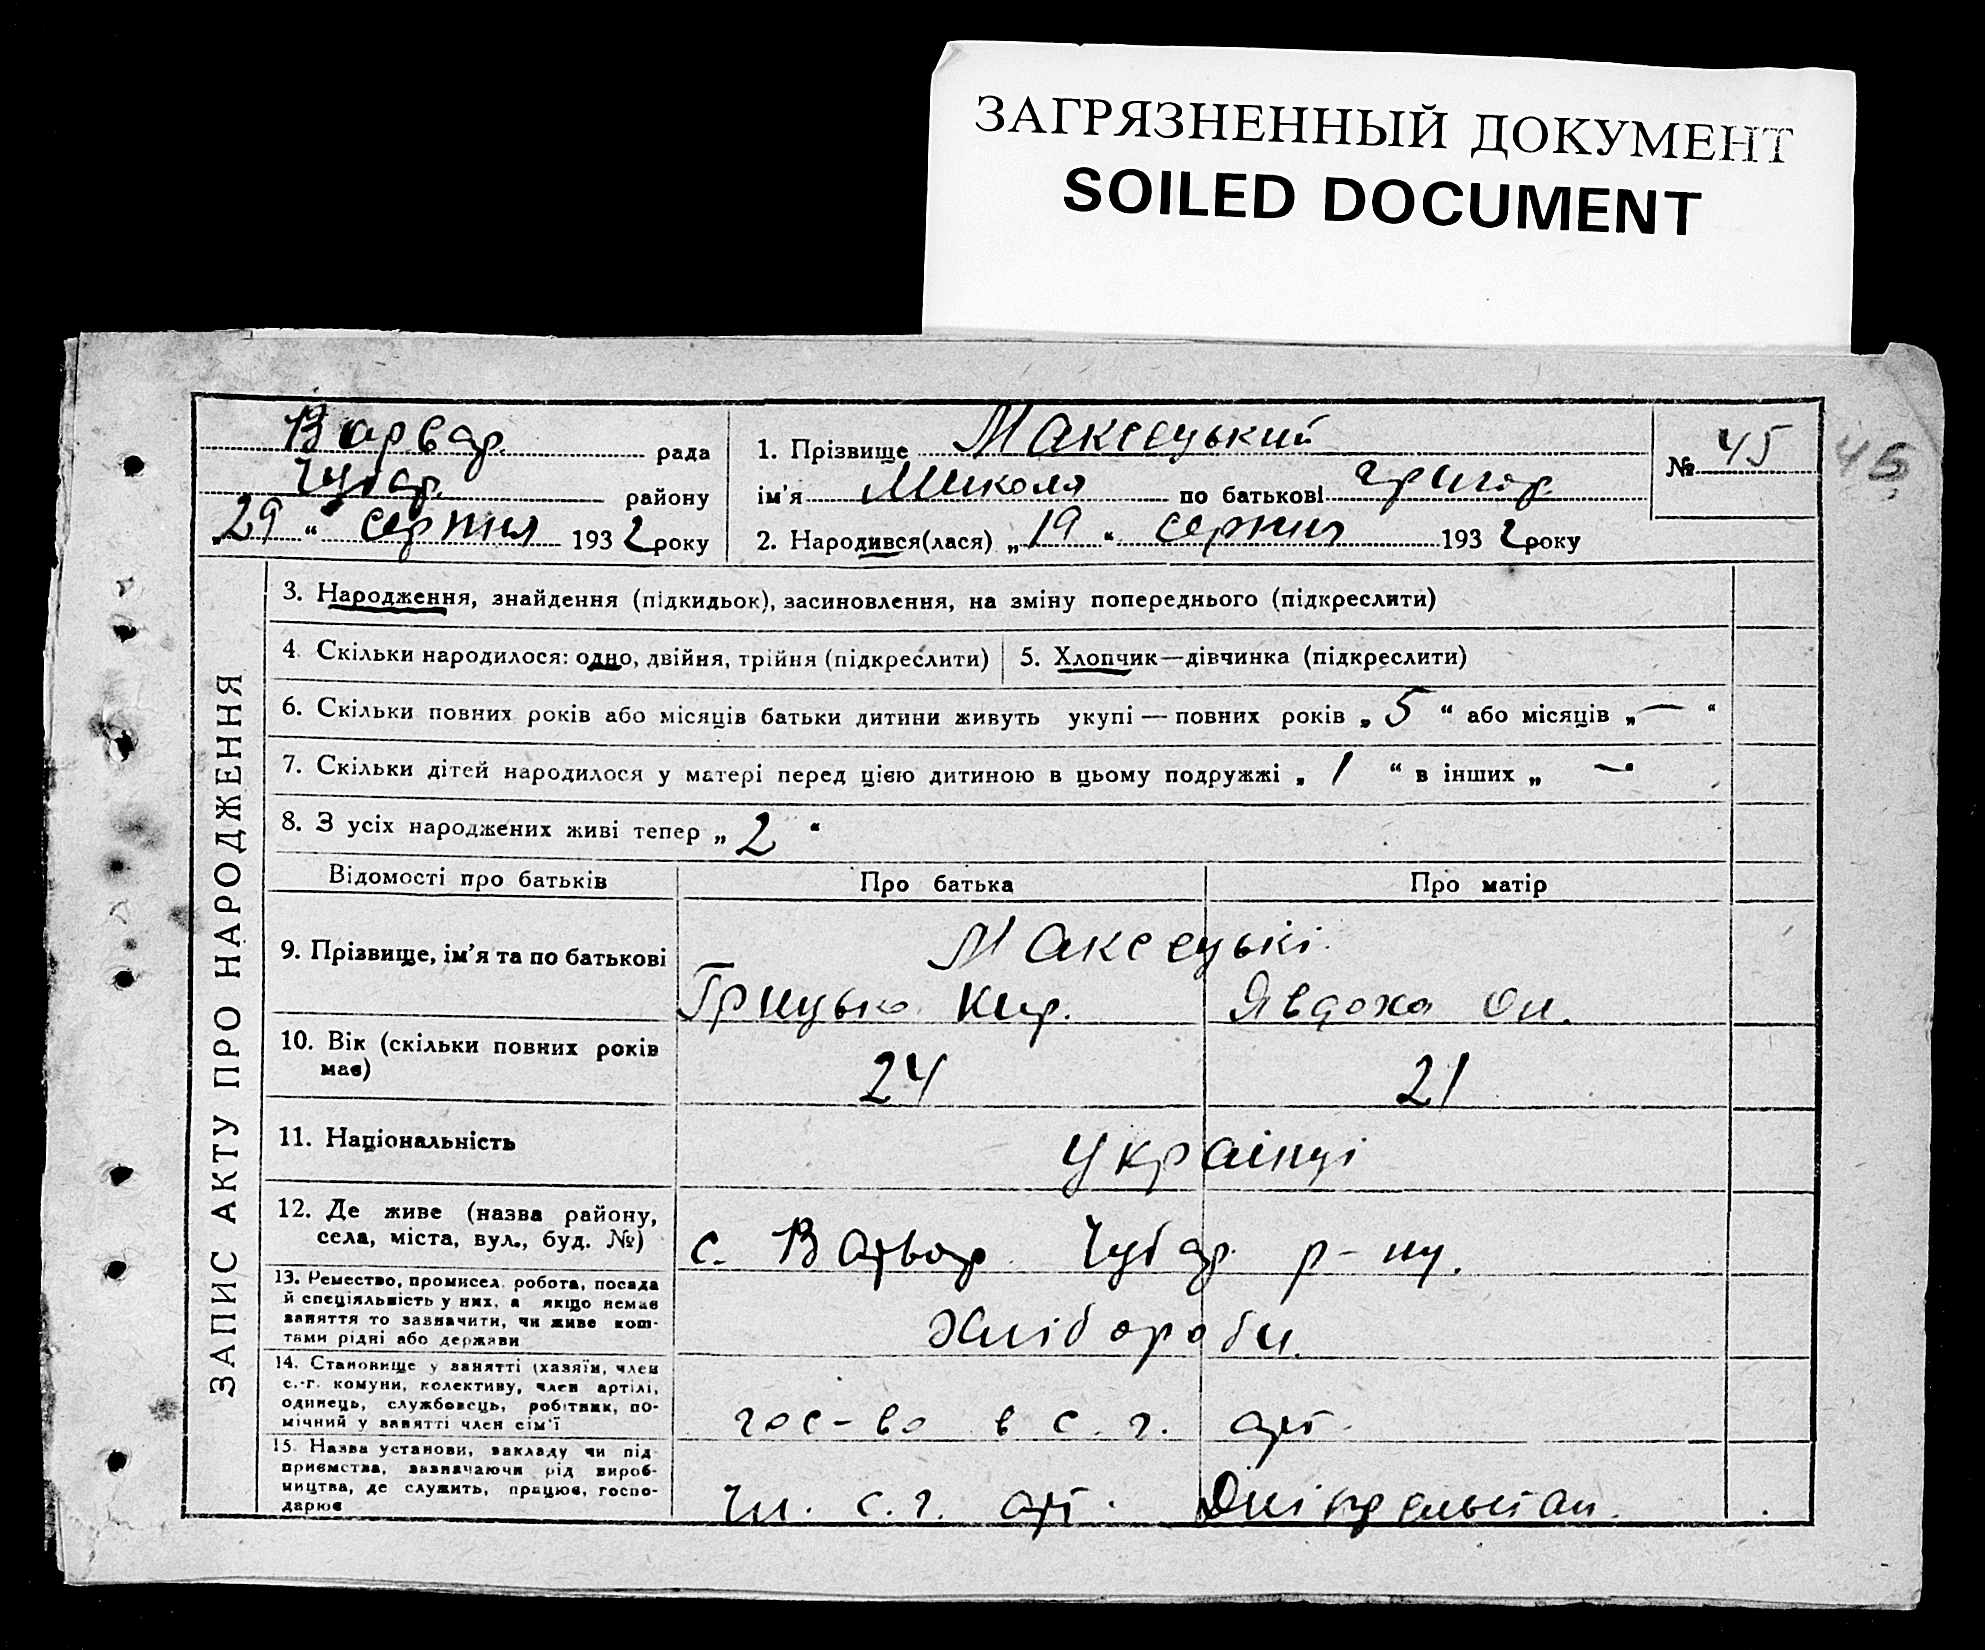 ЗАГРЯЗНЕННЫЙ ДОКУМЕНТ
SOILED DOCUMENT
Варвар. рада
Чубар. району
„29“ серпня 1932 року
1. Прізвище Максецький
ім'я Миколя по батькові Григор.
2. Народився(лася) „19“ серпня 1932 року
№ 45
45
ЗАПИС АКТУ ПРО НАРОДЖЕННЯ
3. Народження, знайдення (підкидьок), засиновлення, на зміну попереднього (підкреслити)
4. Скільки народилося: одно, двійня, трійня (підкреслити)
5. Хлопчик—дівчинка (підкреслити)
6. Скільки повних років або місяців батьки дитини живуть укупі — повних років „5“ або місяців „—“
7. Скільки дітей народилося у матері перед цією дитиною в цьому подружжі „1“ в інших „—“
8. З усіх народжених живі тепер „2“
Відомості про батьків
Про батька
Про матір
9. Прізвище, ім'я та по батькові
Максецькі
Грицько Кир.
Явдоха Он.
10. Вік (скільки повних років
має)
24
21
11. Національність
Українці
12. Де живе (назва району,
села, міста, вул., буд. №)
с. Варвар. Чубар. р-ну.
13. Ремество, промисел, робота, посада
й спеціяльність у них, а якщо немає
заняття то зазначити, чи живе кош-
тами рідні або держави
Хлібороби.
14. Становище у занятті (хазяїн, член
с.-г. комуни, колективу, член артілі,
одинець, службовець, робітник, по-
мічний у занятті член сім'ї
гос-во в с. г. арт.
15. Назва установи, закладу чи під-
приємства, зазначаючи рід вироб-
ництва, де служить, працює, госпо-
дарює
Чл. с. г. арт. Дніпрельстан.